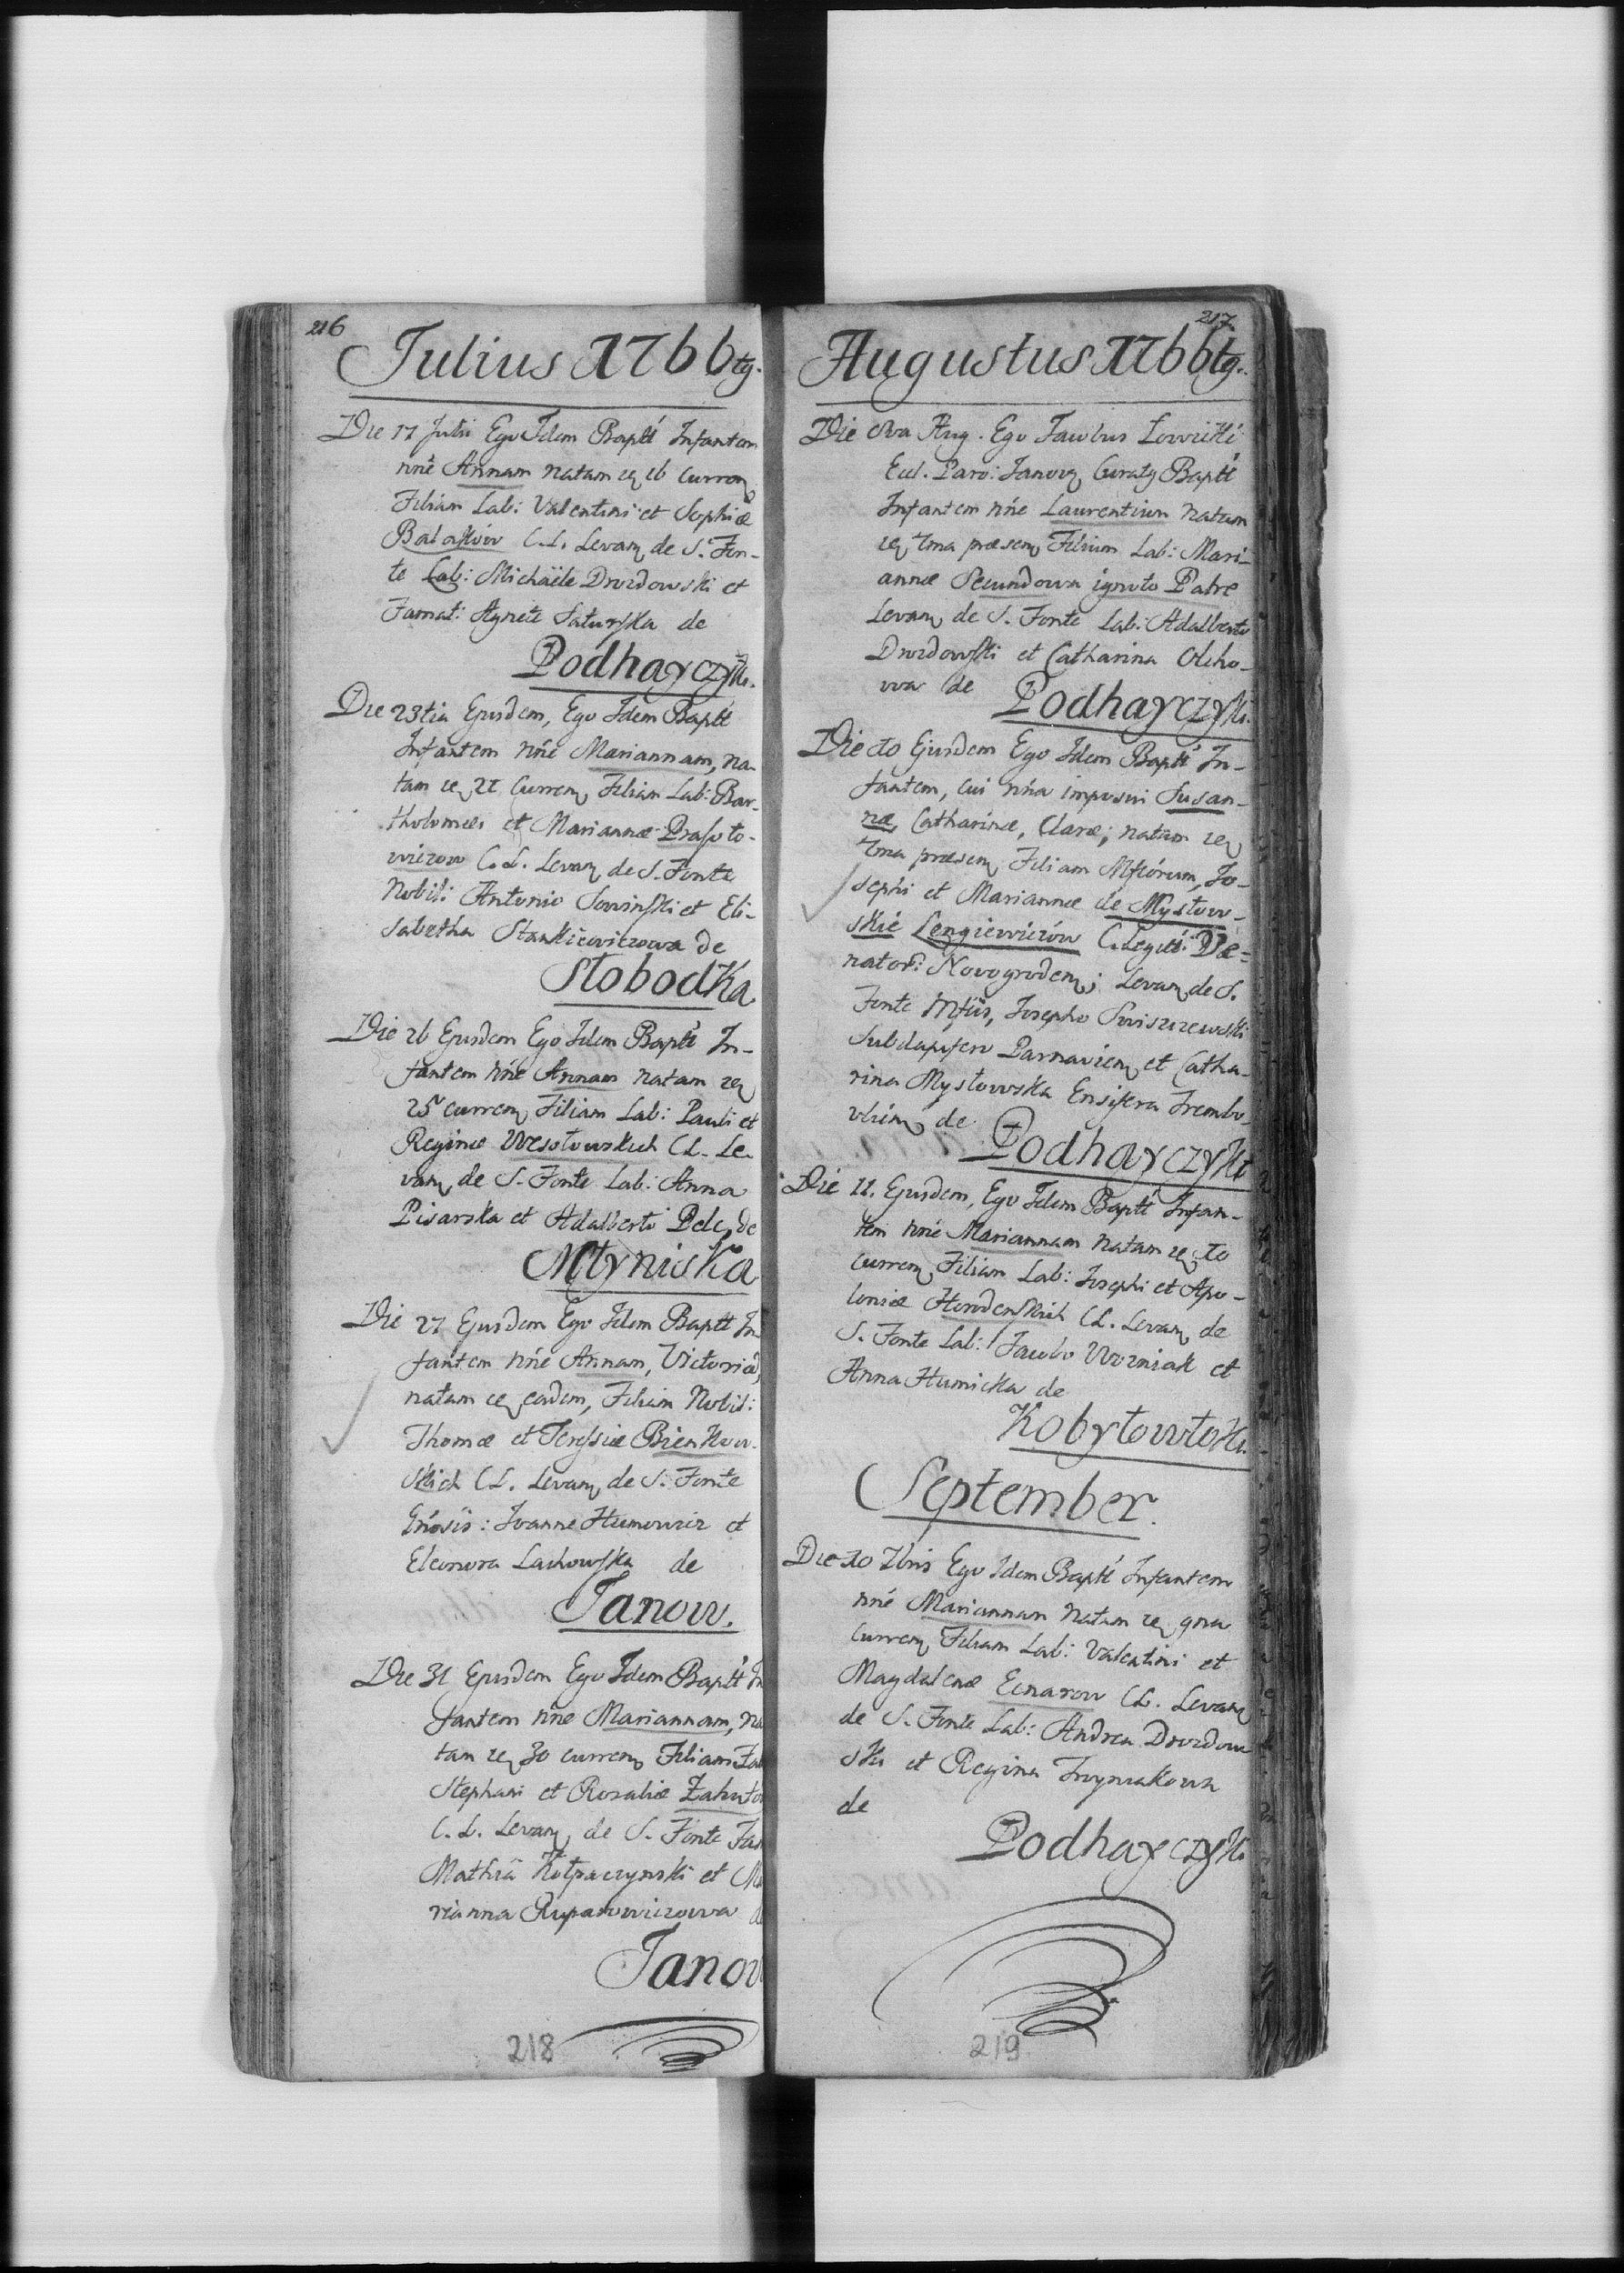 216
Julius 1766tq.
Die 17 Julii Ego Idem Baptt Infantem
nñe Annam natam eq 16 curren
Filiam Lab: Valentini et Sophiæ
C.L. Levan de S. Fon-
te Lab: Michaële Drozdowski et
Famat: Agnete Saturska de
Podhayczyki.
Die 23tia Ejusdem, Ego Idem Baptt
Infantem nñe Mariannam, na-
tam eq 21 curren Filiam Lab: Bar-
tholomæi et Mariannæ Prasoło-
wiczow C.L. Levan de S. Fonte
Nobili: Antonio Sowinski et Eli-
sabetha Stankiewiczowa de
Słobodka
Die 26 Ejusdem Ego Idem Baptt In-
fantem nñe Annam natam eq
25 curren Filiam Lab: Pauli et
Reginæ Wesołowskich CL. Le-
van de S. Fonte Lab: Anna
Pisarska et Adalberto Pelc, de
Młyniska
Die 27 Ejusdem Ego Idem Baptt In
fantem nñe Annam, Victoriã,
natam eq eadem, Filiam Nobil:
Thomæ et Teresiæ Bienkow-
skich CL. Levan de S. Fonte
Gñosis: Joanne Humowicz et
Eleonora Lachowska de
Janow.
Die 31 Ejusdem Ego Idem Baptt In
fantem nñe Mariannam, na
tam eq 30 curren Filiam
Stephani et Rosaliæ
C.L. Levan de S. Fonte
Mathiâ Kołpaczynski et Ma
rianna
Janow
218
217.
Augustus 1766tq.
Die 8va Aug. Ego Jacobus Łowicki
Eccl. Paro: Janov Curatq Baptt
Infantem nñe Laurentium natum
eq 7ma præsen Filium Lab: Mari-
annæ Secundowa ignoto Patre
Levan de S. Fonte Lab: Adalberto
Drozdowski et Catharina Olcho-
wa de Podhayczyki.
Die 10 Ejusdem Ego Idem Baptt In-
fantem, cui nña imposui Susan-
næ, Catharinæ, Claræ; natam eq
7ma præsen Filiam Mficórum, Jo-
sephi et Mariannæ de Mysłow-
skie Lengiewiczów C. Legitt: Væ-
nator: Novogroden; Levan de S.
Fonte Mficis, Josepho Swiszczewski
Subdapifero Parnavien et Catha-
rina Mysłowska Ensifera Trembo-
vlien de Podhayczyki
Die 11. Ejusdem, Ego Idem Baptt Infan-
tem nñe Mariannam natam eq 10
curren Filiam Lab: Josephi et Apo-
loniæ Horodenskich CL. Levan de
S. Fonte Lab: Jacobo Wozniak et
Anna Humicka de
Kobyłowłoki.
September.
Die 10 7bris Ego Idem Baptt Infantem
nñe Mariannam natam eq 9na
curren Filiam Lab: Valentini et
Magdalenæ Ecnarow CL. Levan
de S. Fonte Lab: Andrea Drozdow
ski et Regina
de
Podhayczyki
219